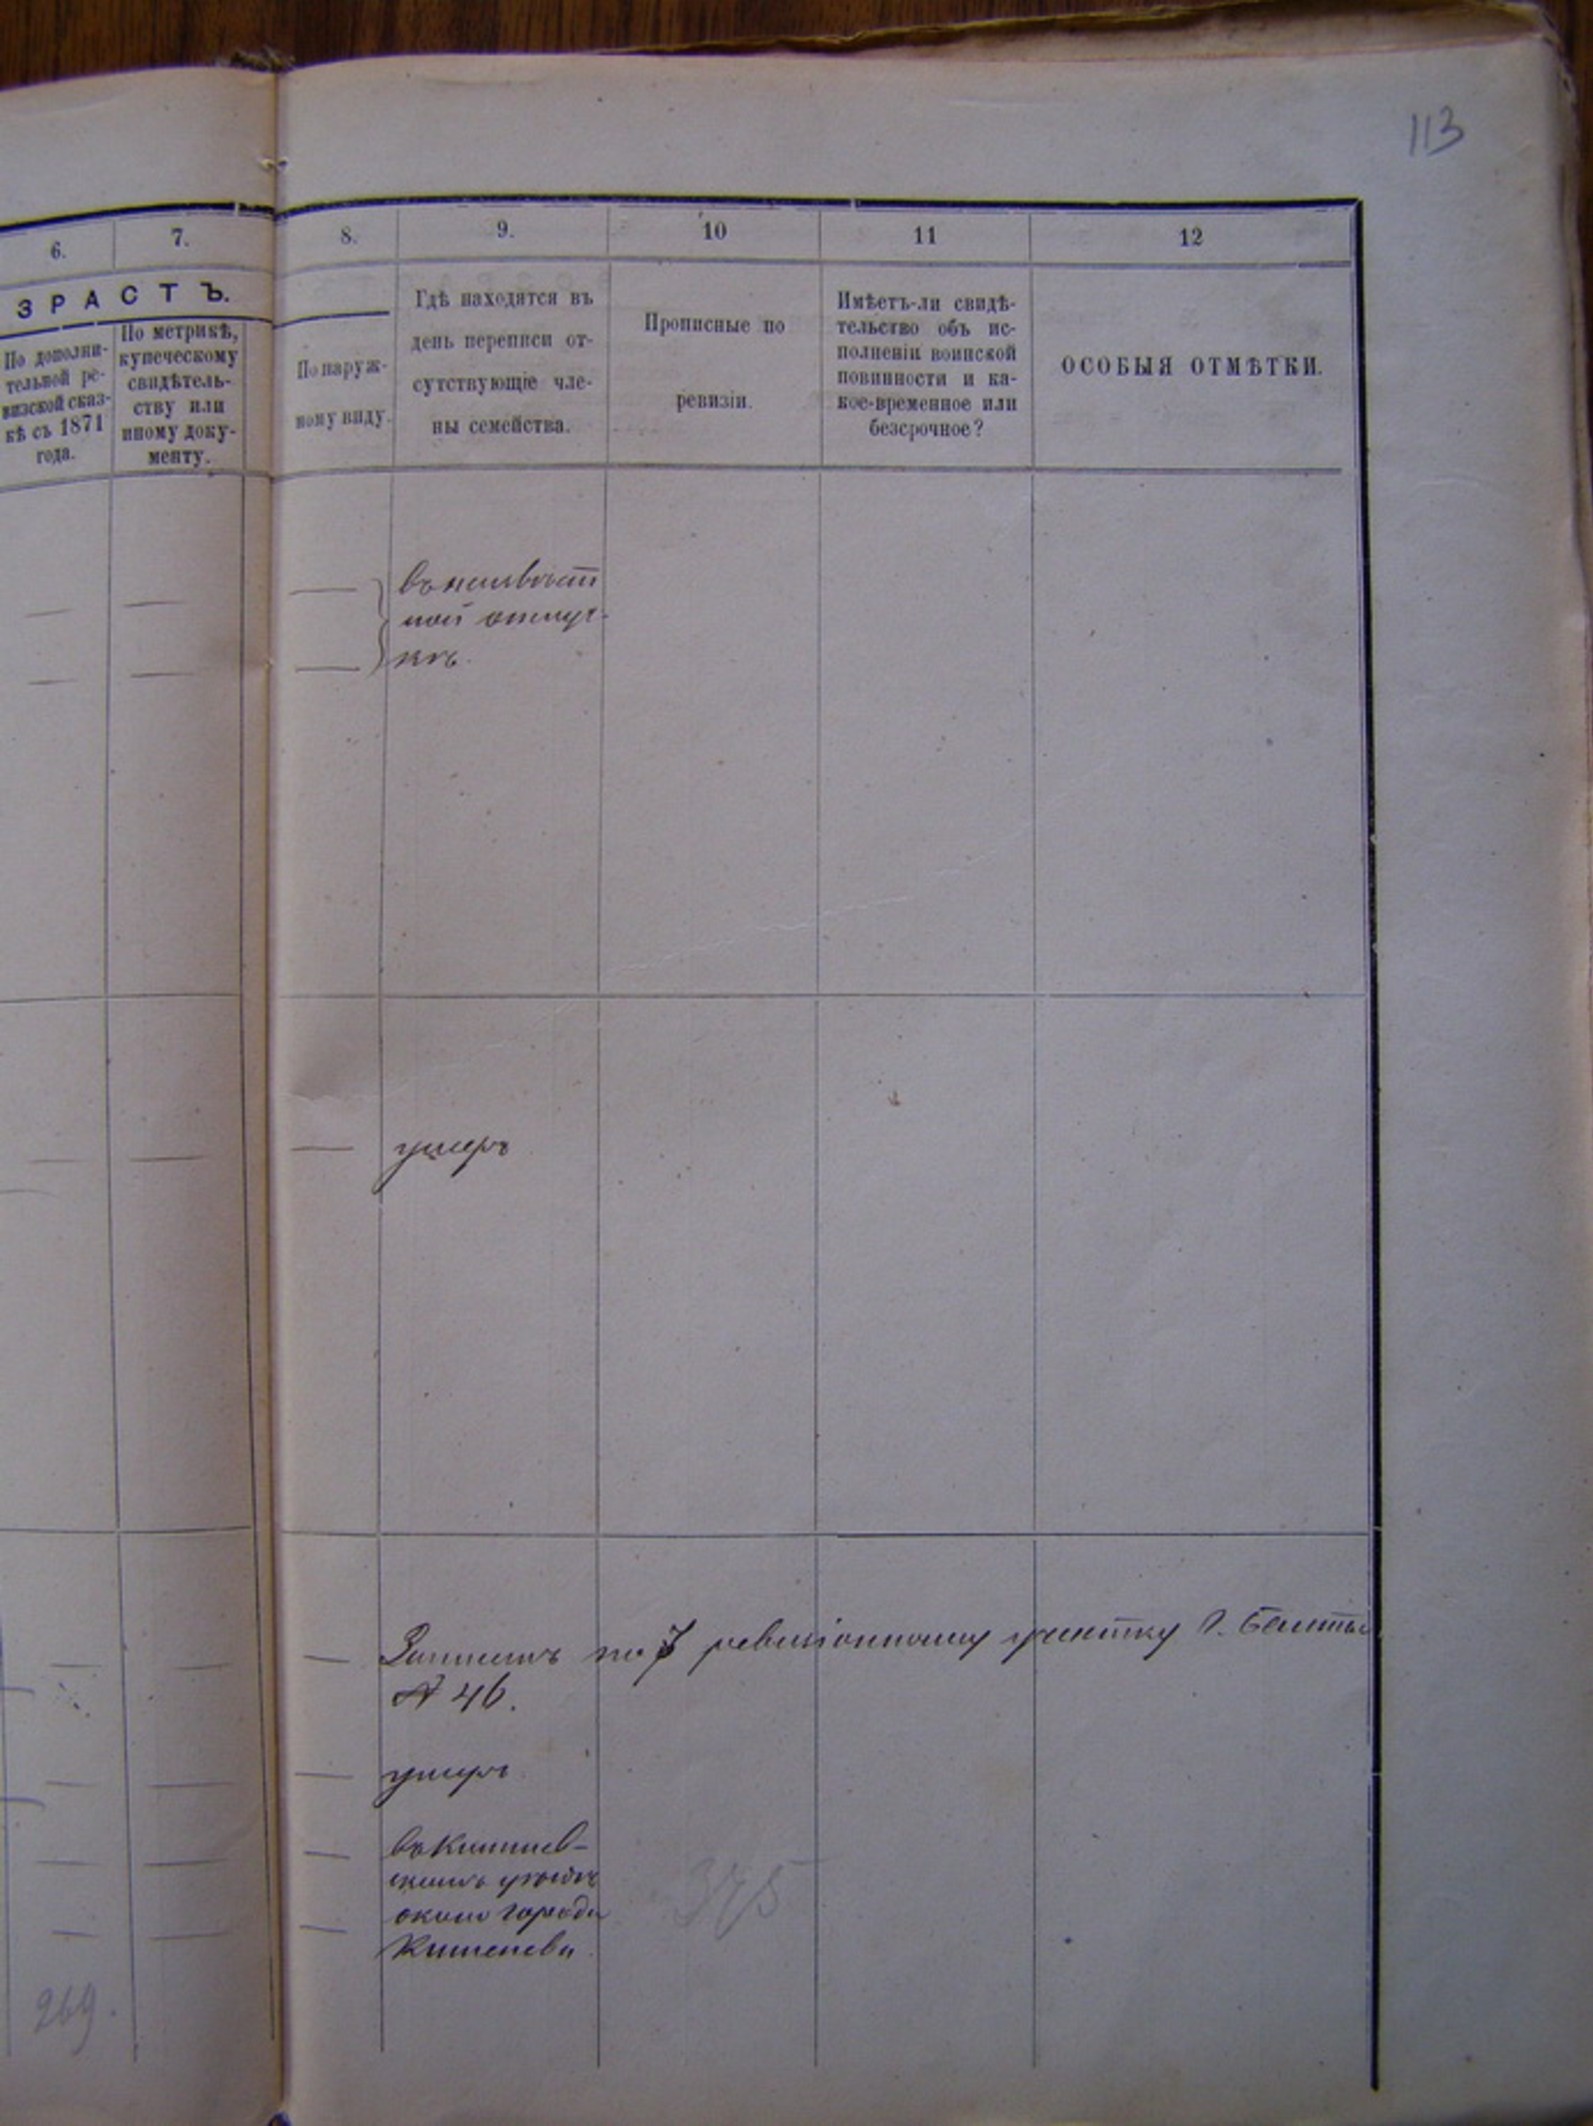 113
6.
7.
8.
9.
10
11
12
ЗРАСТЪ.
По дополни-
тельной ре-
визской сказ-
кѣ съ 1871
года.
По метрикѣ,
купеческому
свидѣтель-
ству или
иному доку-
менту.
По наруж-
ному виду.
Гдѣ находятся въ
день переписи от-
сутствующіе чле-
ны семейства.
Прописные по
ревизіи.
Имѣетъ-ли свидѣ-
тельство объ ис-
полненіи воинской
повинности и ка-
кое-временное или
безсрочное?
ОСОБЫЯ ОТМѢТКИ.
въ неизвѣст
ной отлуч-
кѣ.
умеръ
Записанъ по 7 ревизіонному участку г.
№ 46.
умеръ
въ Кишинев-
скомъ уѣздѣ
около города
Кишенева
375
269.